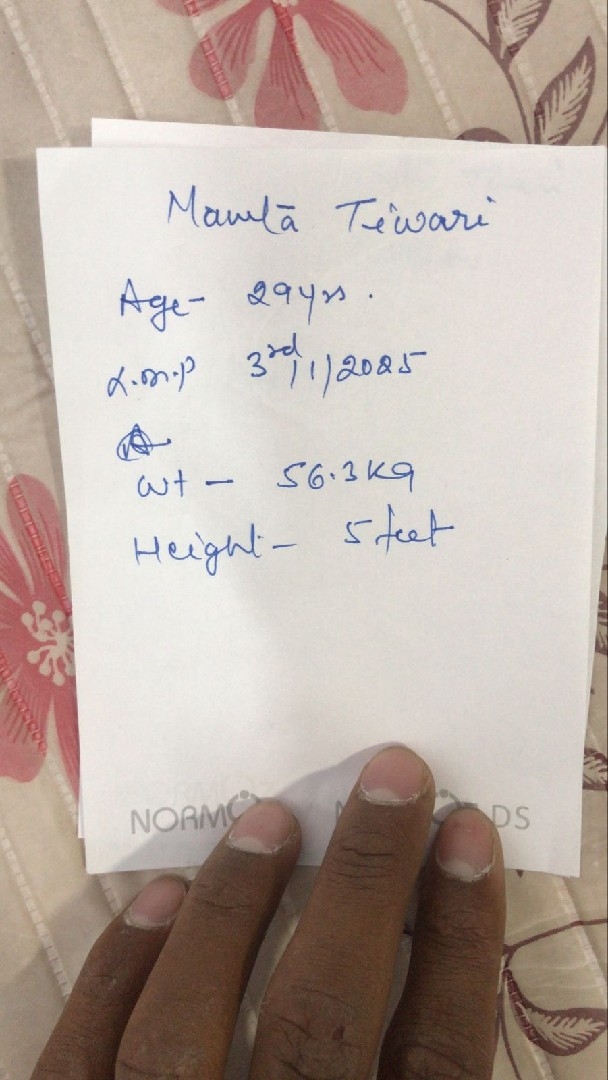 Mamtā Tiwari
Age- 29yrs.
L.m.p 3rd/1/2025
Wt - 56.3Kg
Height- 5 feet
NORM
DS